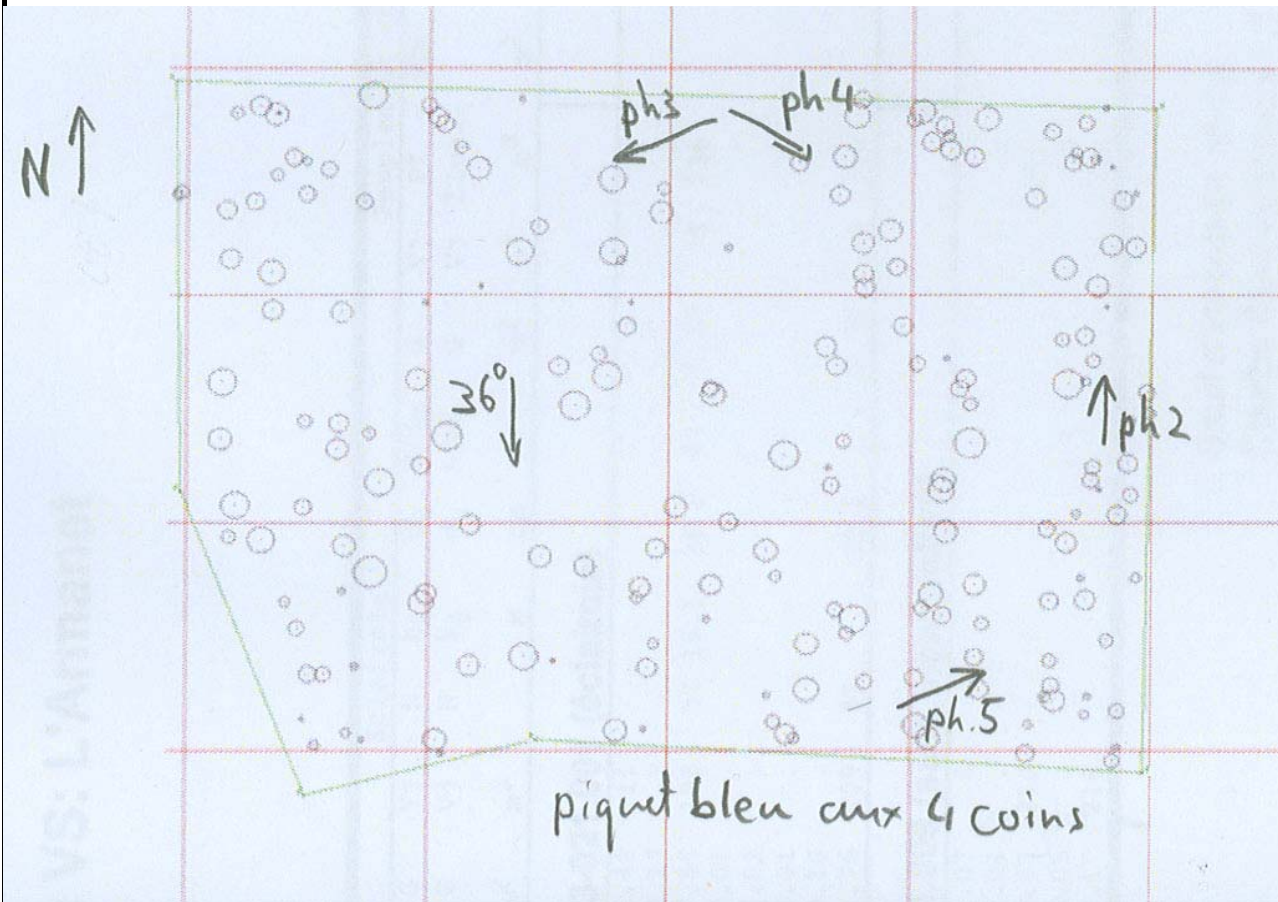 ph3
ph4
N
36°
ph2
ph.5
piquet bleu aux 4 coins